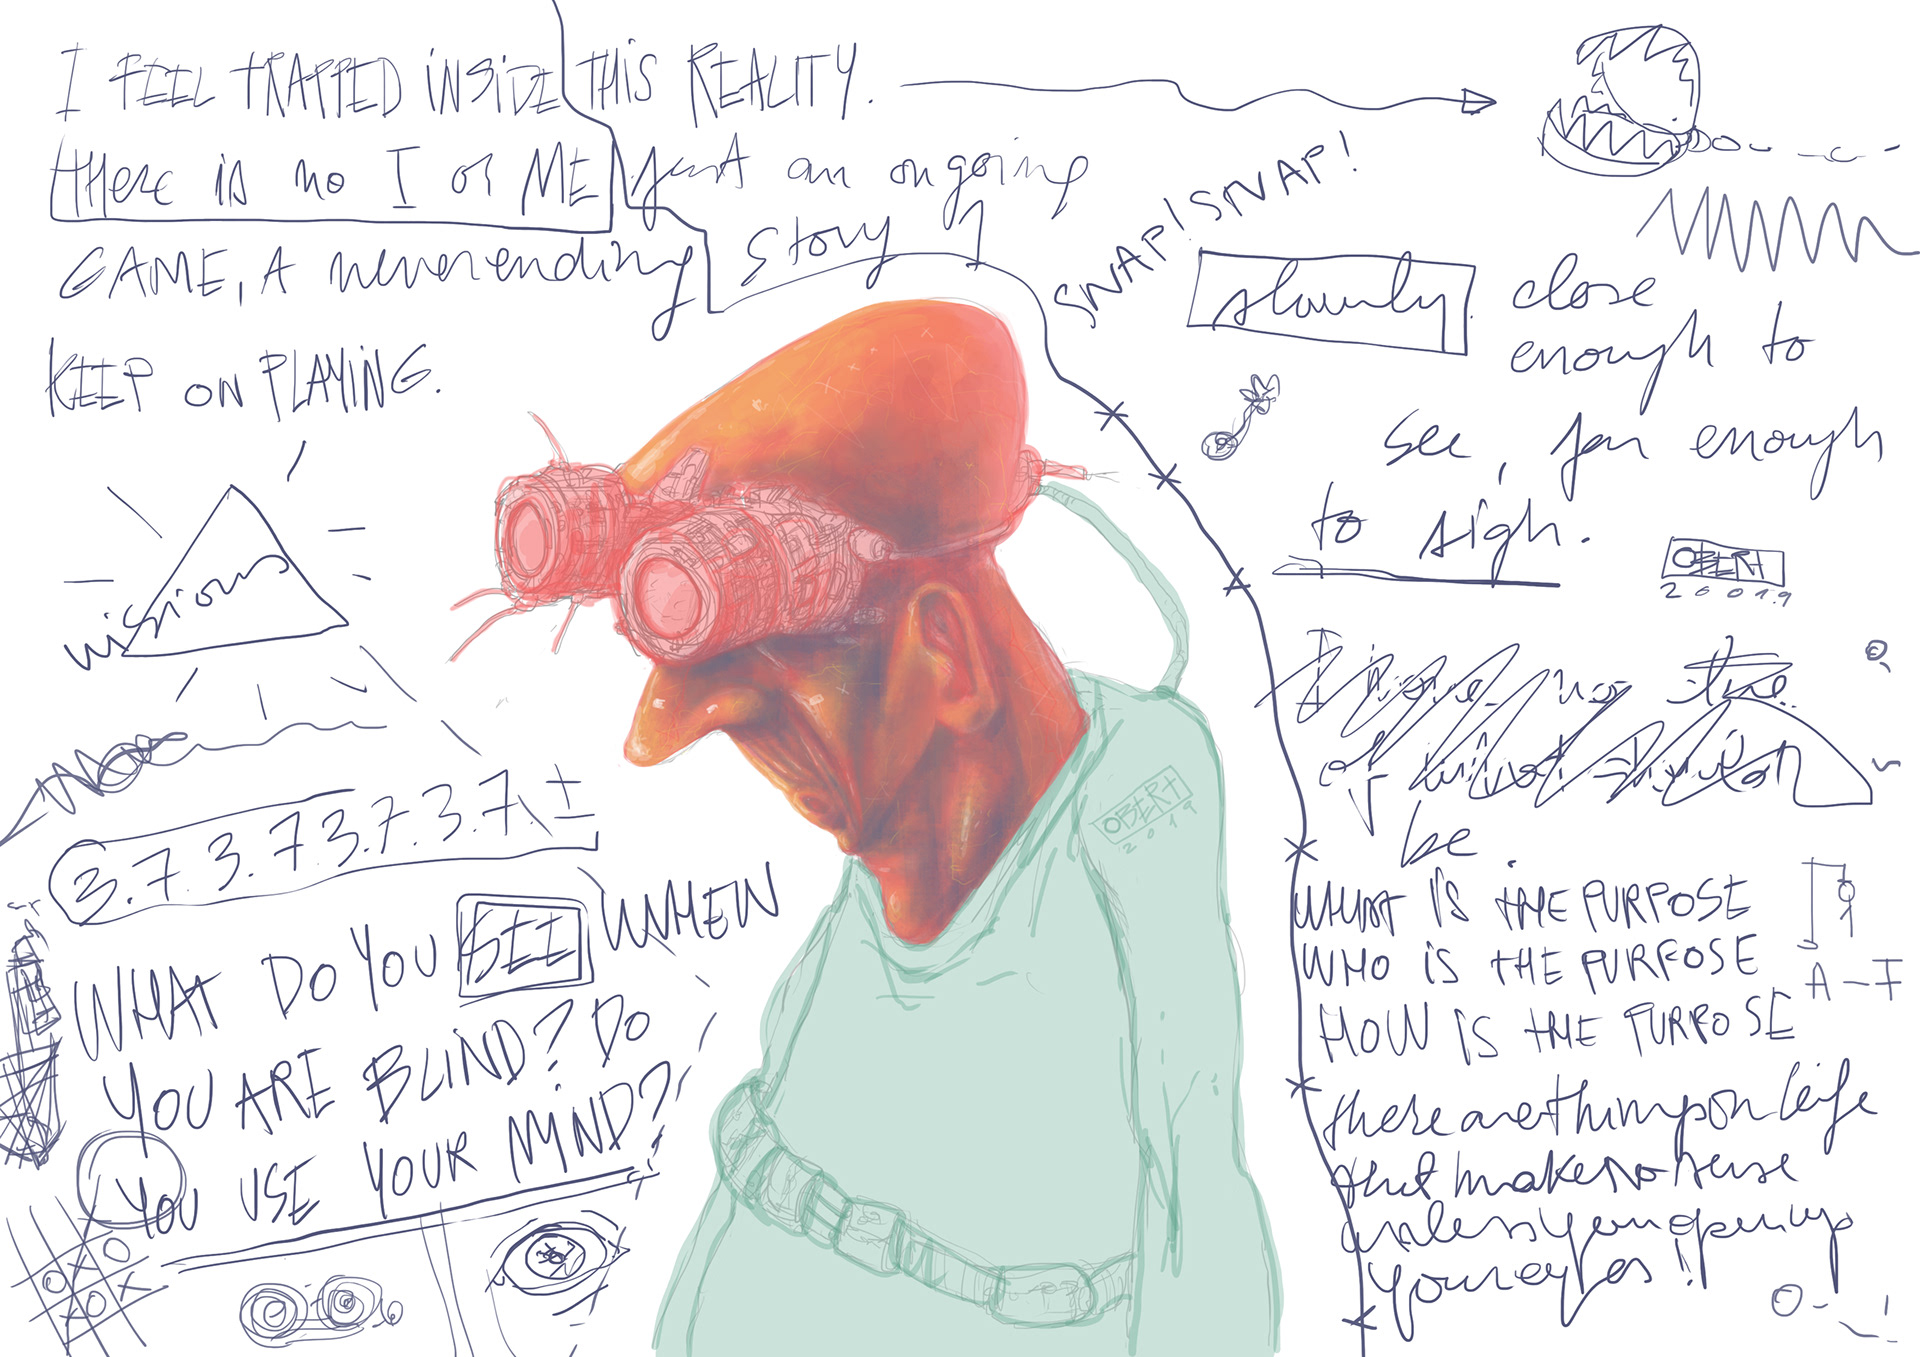 I FEEL TRAPPED INSIDE THIS REALITY.
there is no I or ME just an ongoing
GAME, A neverending story
KEEP ON PLAYING.
SNAP! SNAP!
slowly close
enough to
see, far enough
to sigh.
OBERT
20019
missions
3.7.3.7.3.7.3.7. ±
WHAT DO YOU SEE WHEN
YOU ARE BLIND? DO
YOU USE YOUR MIND?
OBERT
2019
I no the
of
be.
WHAT IS THE PURPOSE
WHO IS THE PURPOSE
HOW IS THE PURPOSE
A-I
there are things on life
that make no sense
unless you open up
your eyes!